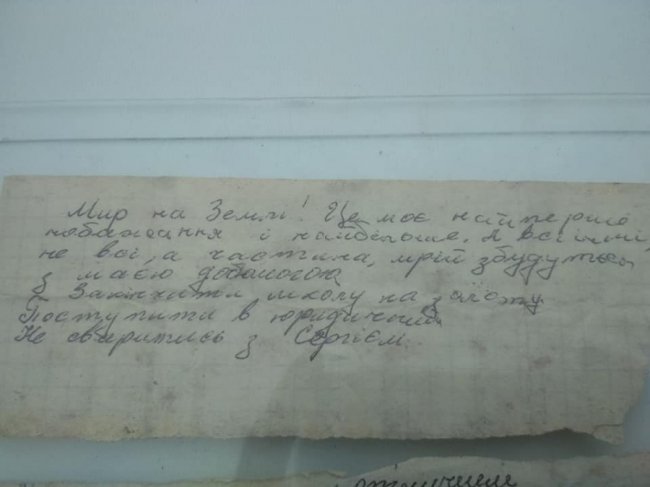 Мир на Землі! Це моє найперше
побажання і найбільше. А всі інші,
не всі, а частина, мрій збудуться
з маєю допомогою
Закінчити школу на золоту
Поступити в юридичний
Не сваритись з Сергієм.